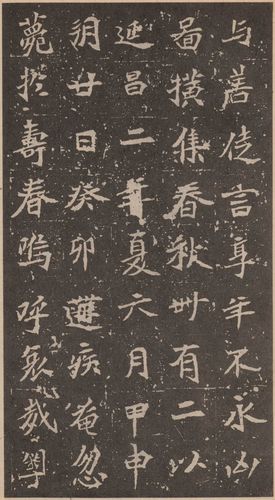 与善徒言享年不永凶
啚撗集春秋卌有二以
延昌二年夏六月甲申
朔廿日癸卯遘疾奄忽
薨於壽春嗚呼哀哉